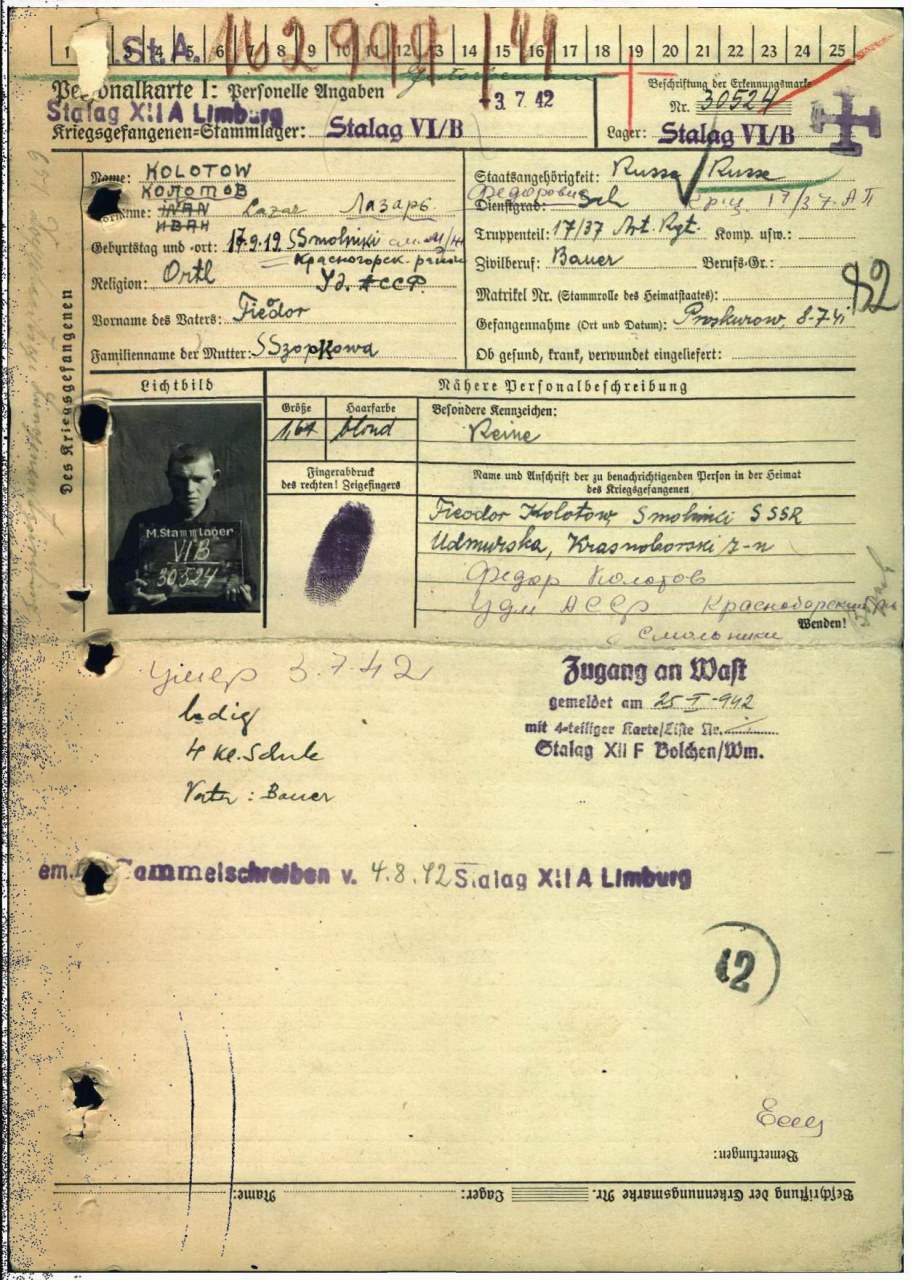 1 3 4 5 6 7 8 9 10 11 12 13 14 15 16 17 18 19 20 21 22 23 24 25
St.A. 162
Personalkarte I: Personelle Angaben
-3. 7. 42
Beschriftung der Erkennungsmarke
Nr. 30524
Stalag XII A Limburg
Kriegsgefangenen=Stammlager: Stalag VI/B
Lager: Stalag VI/B
Des Kriegsgefangenen
Name: KOLOTOW
КОЛОТОВ
Vorname: IWAN Lazar Лазарь
ИВАН
Geburtstag und -ort: 17.9.19 SSmolniki
Красногорск. район
Religion: Ortl Уд. АССР.
Vorname des Vaters: Fiedor
Familienname der Mutter: SSzopkowa
Staatsangehörigkeit: Russe / Russe
Федорович
Dienstgrad: Sol Крц 17/37 АП
Truppenteil: 17/37 Art. Rgt. Komp. usw.:
Zivilberuf: Bauer Berufs-Gr.:
Matrikel Nr. (Stammrolle des Heimatstaates):
82
Gefangennahme (Ort und Datum): Proskurow, 8.7.41
Ob gesund, krank, verwundet eingeliefert:
Lichtbild
Nähere Personalbeschreibung
Größe Haarfarbe Besondere Kennzeichen:
1,64 blond Keine
M.Stammlager
VI B
30524
Fingerabdruck
des rechten! Zeigefingers
Name und Anschrift der zu benachrichtigenden Person in der Heimat
des Kriegsgefangenen
Fieodor Kolotow Smolniki SSSR
Udmurska, Krasnoborski r-n
Федор Колотов
Удм АССР Красноборский
Смольники
Wenden!
умер 3.7.42
ledig
4 Kl. Schule
Vater: Bauer
Zugang an Wast
gemeldet am 25-I-942
mit 4-teiliger Karte/Liste Nr.
Stalag XII F Bolchen/Wm.
em. Sammelschreiben v. 4.8.42 Stalag XII A Limburg
12
Bemerkungen:
Beschriftung der Erkennungsmarke Nr. Lager: Name: